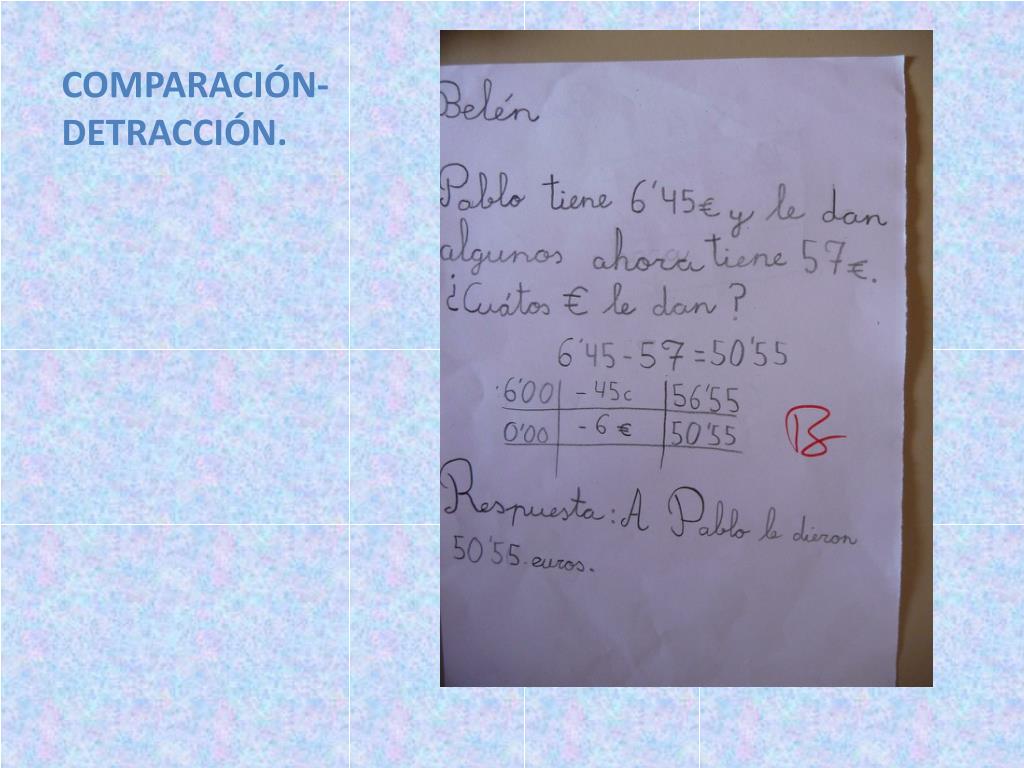 COMPARACIÓN-
DETRACCIÓN.
Belén
Pablo tiene 6'45€ y le dan
algunos ahora tiene 57€.
¿Cuátos € le dan?
6'45-57=50'55
6'00 - 45c 56'55
0'00 - 6 € 50'55
B
Respuesta: A Pablo le dieron
50'55 euros.